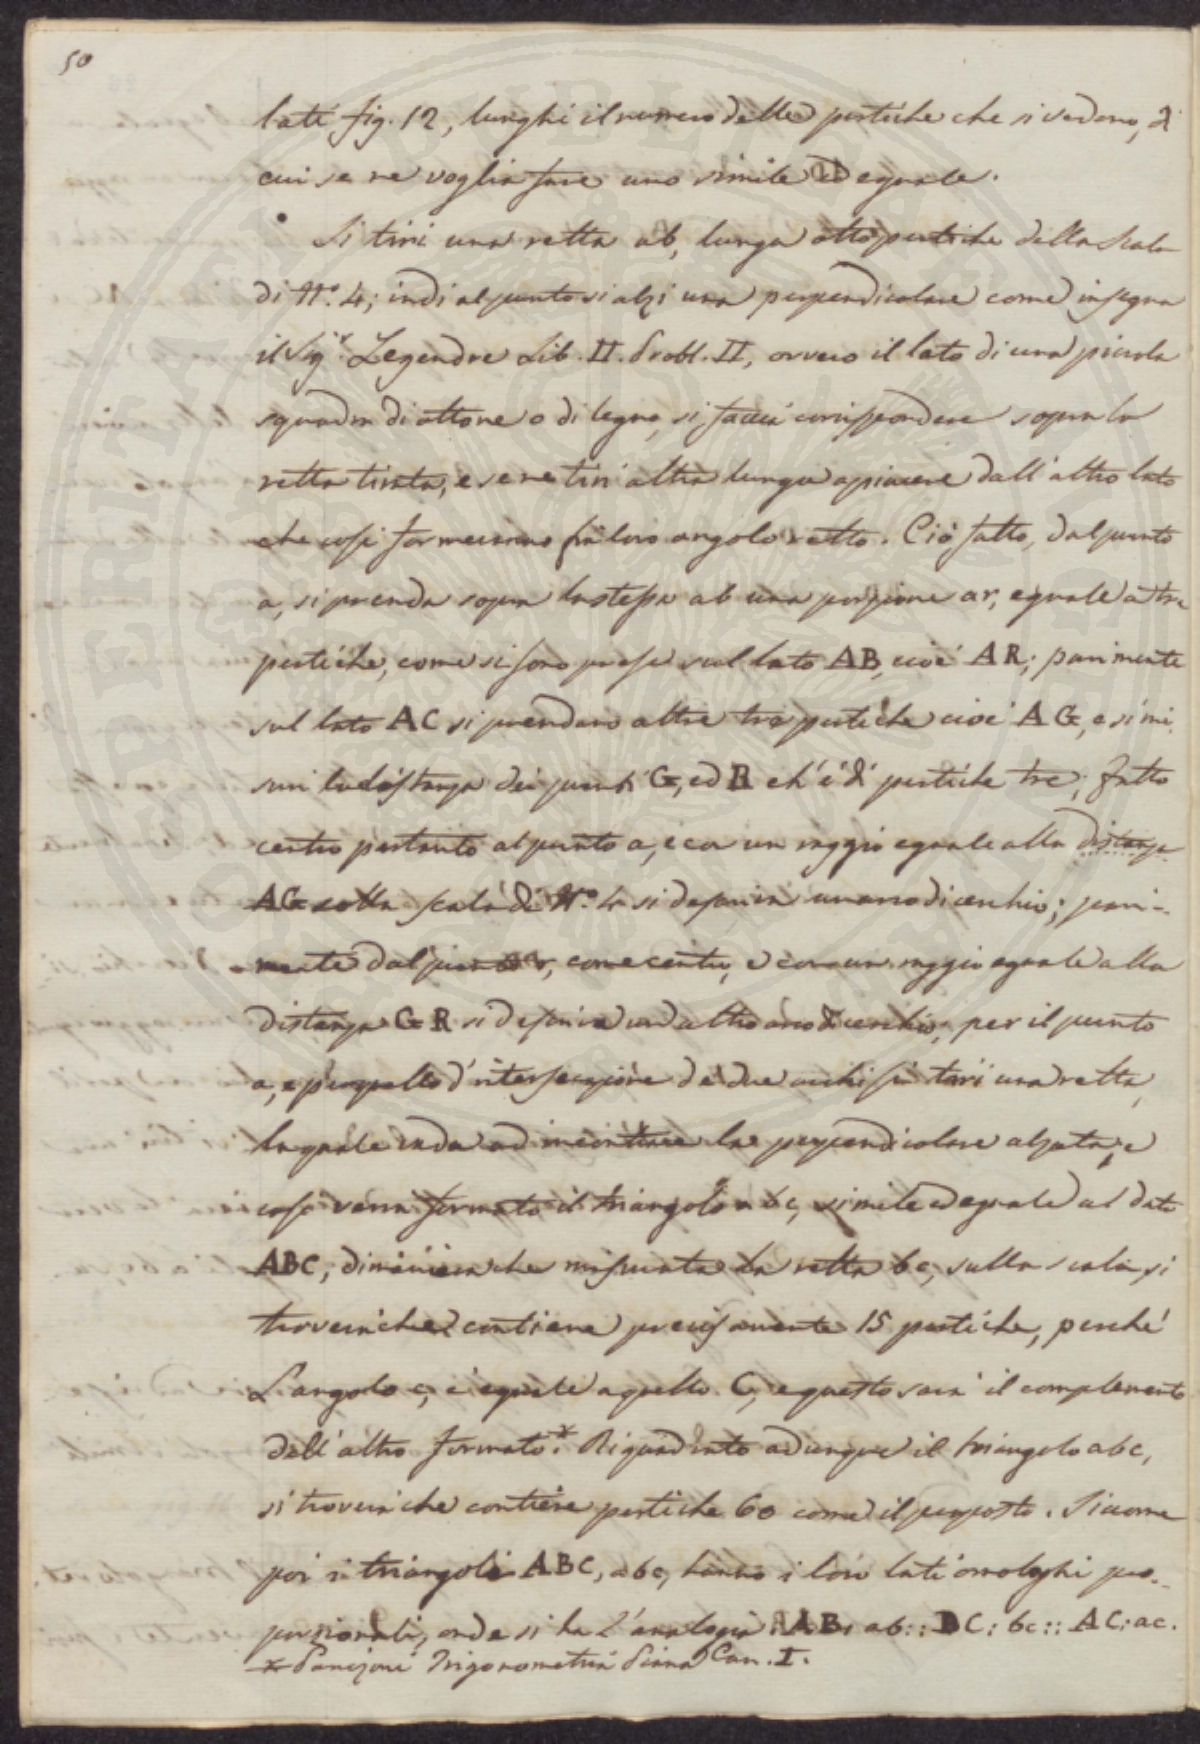 50
lati fig. 12, lunghi il numero delle pertiche che si vedono, di
cui se ne voglia fare uno simile ed eguale.
Si tiri una retta ab, lunga otto pertiche della scala
di N.º 4; indi al punto si alzi una perpendicolare come insegna
il Sig.r Legendre Lib. II. Probl. II, ovvero il lato di una piccola
squadra di ottone o di legno, si facci corrispondere sopra la
retta tirata, e se ne tiri altra lunga a piacere dall'altro lato
che così formeranno fra loro angolo retto. Ciò fatto, dal punto
a, si prenda sopra la stessa ab una porzione ar, eguale a tre
pertiche, come si sono prese sul lato AB, cioè AR; parimente
sul lato AC si prendano altre tre pertiche cioè AG, e si mi-
suri la distanza dei punti G, ed R ch'è di pertiche tre; fatto
centro pertanto al punto a, e con un raggio eguale alla distanza
AG sulla scala di N.º 4 si descriva un arco di cerchio; pari-
mente dal punto r, come centro, e con un raggio eguale alla
distanza GR si descriva un altro arco di cerchio; per il punto
a, e per quello d'intersezione de due archi si tiri una retta,
la quale vada ad incontrare la perpendicolare alzata, e
così verrà formato il triangolo abc, simile ed eguale al dato
ABC; dimanieracche misurata la retta bc, sulla scala, si
troverà che contiene precisamente 15 pertiche, perché
L'angolo c, è eguale a quello C, e questo sarà il complemento
dell'altro formato.* Riquadrato adunque il triangolo abc,
si troverà che contiene pertiche 60 come il proposto. Siccome
poi i triangoli ABC, abc, hanno i loro lati omologhi pro-
porzionali, onde si ha l'analogia: AB: ab:: BC: bc:: AC: ac.
* Trigonometria Piana Can. I.